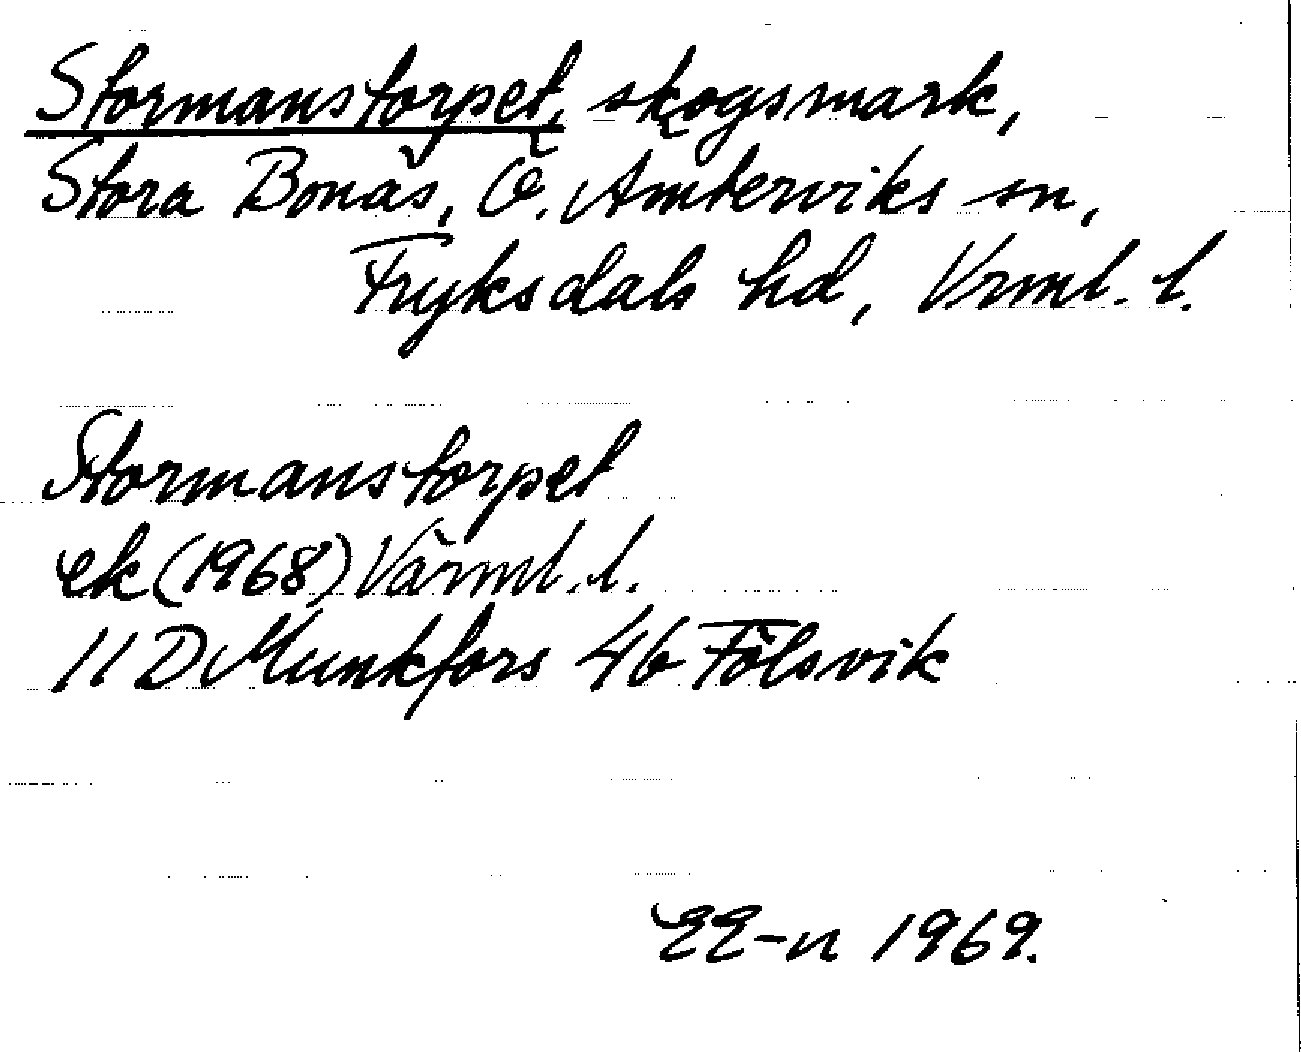 Stormanstorpet, skogsmark,
Stora Bonäs, Ö. Ämterviks sn,
Fryksdals hd, Vrml. l.
Stormanstorpet
ek (1968) Värml. l.
11 D Munkfors 46 Fölsvik
EE-n 1969.